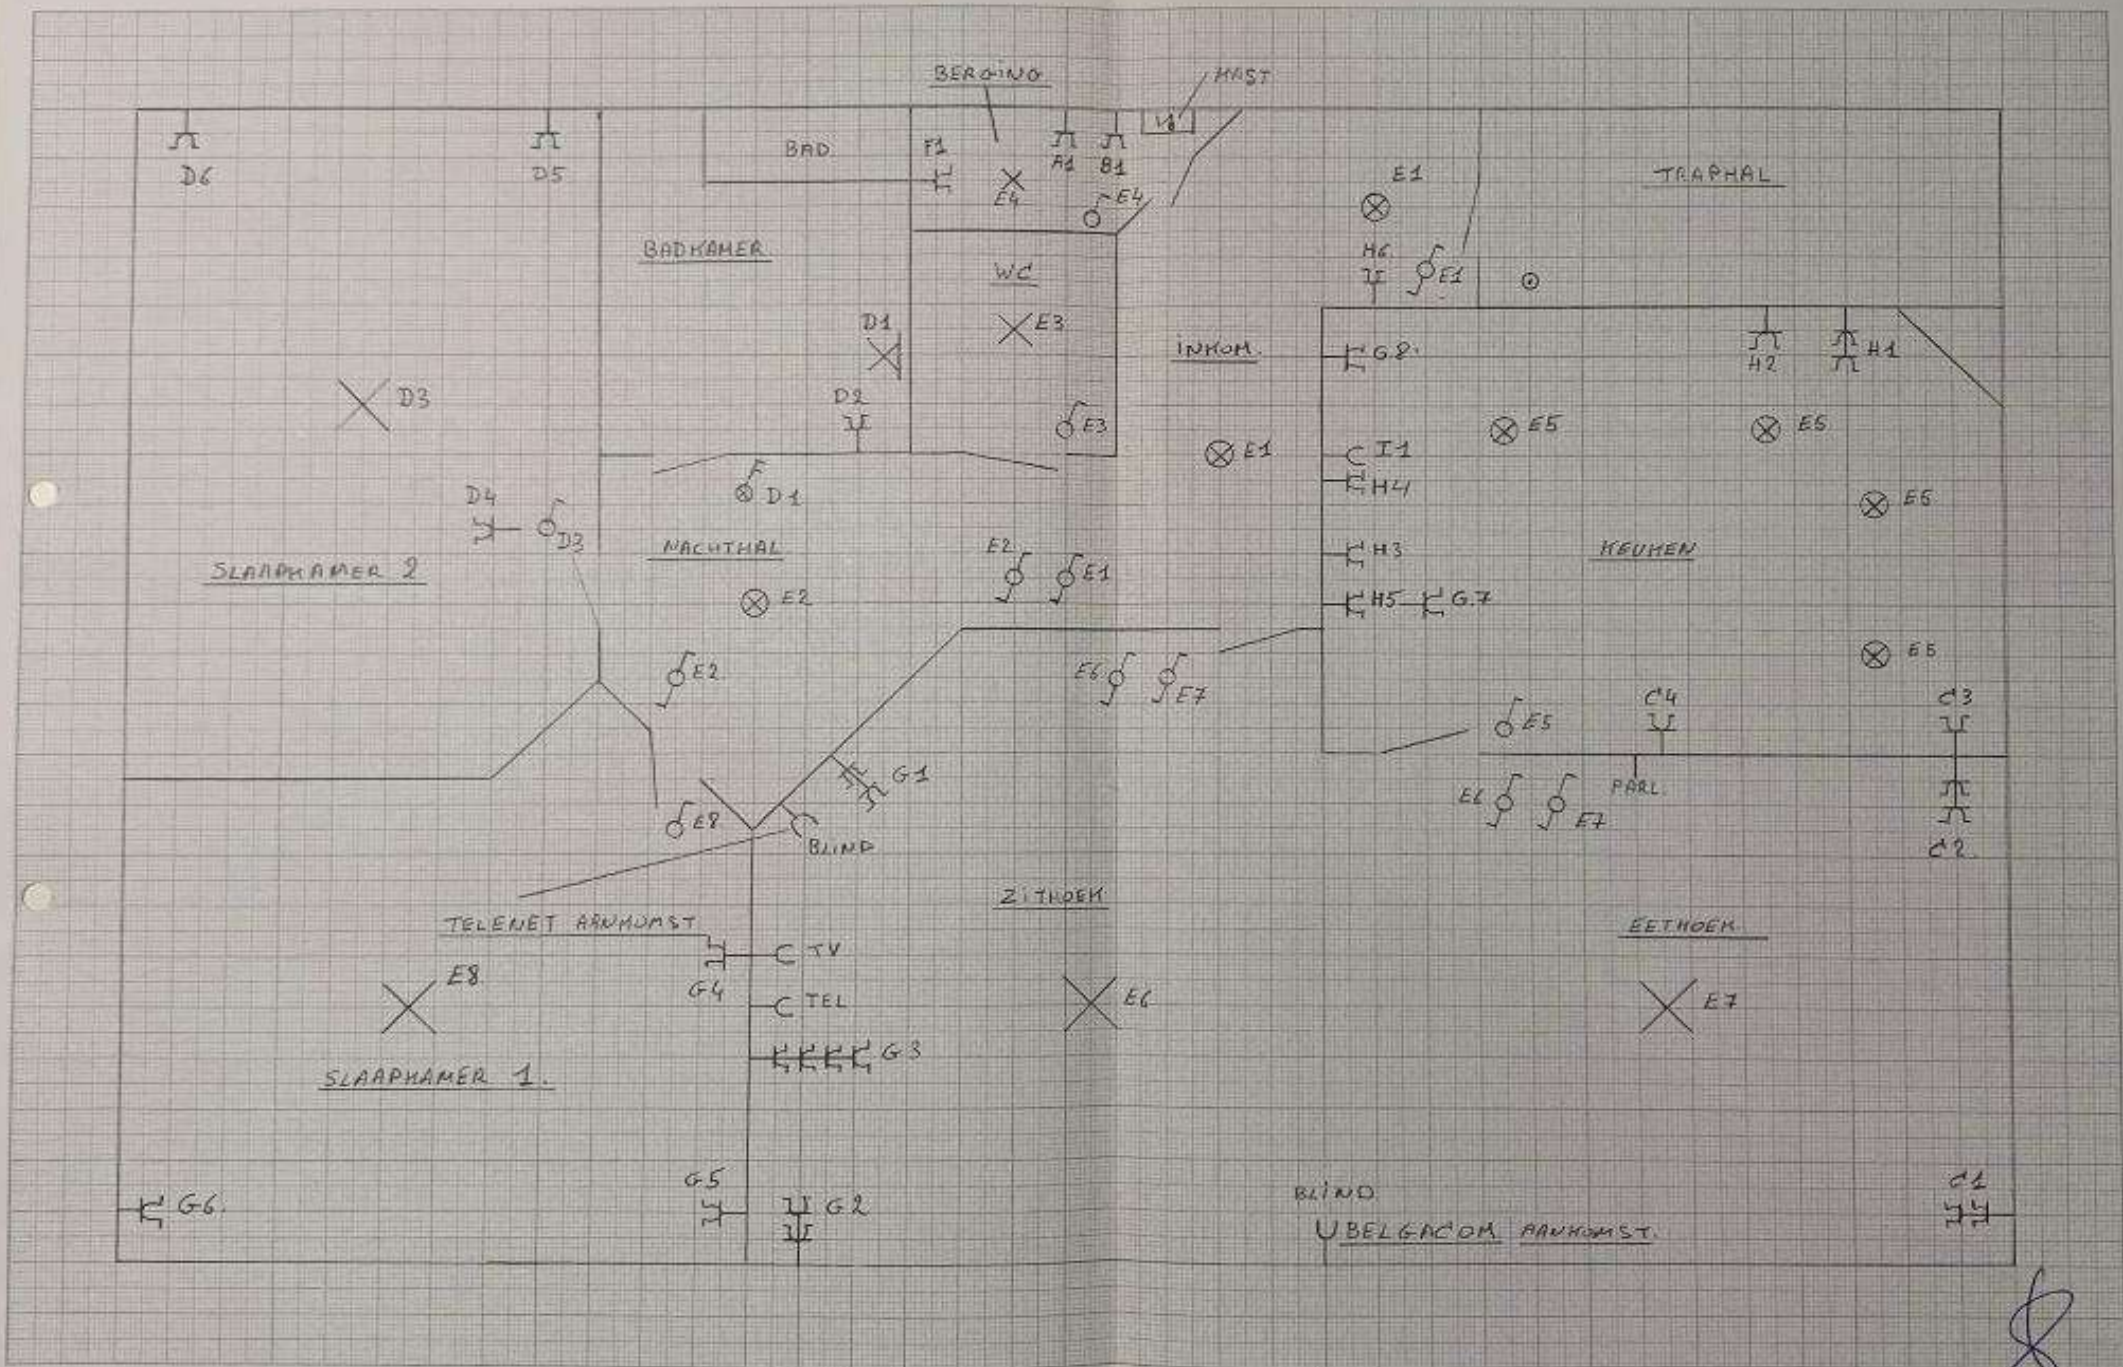 BERGING
KAST
D6
D5
BAD
F1
A1
B1
E4
E4
E1
TRAPHAL
BADKAMER
WC
H6
E1
D1
E3
INKOM.
G8.
H2
H1
D3
D2
E3
E1
I1
H4
E5
E5
E5
D4
D3
D1
NACHTHAL
E2
E1
H3
KEUKEN
SLAAPKAMER 2
E2
H5
G7
E2
E6
E7
E5
E5
C4
C3
G1
E6
E7
PARL.
E8
BLIND
C2
ZITHOEK
TELENET AANKOMST
EETHOEK
TV
E8
G4
TEL
E6
E7
G3
SLAAPKAMER 1.
G6.
G5
G2
BLIND
BELGACOM AANKOMST.
C1